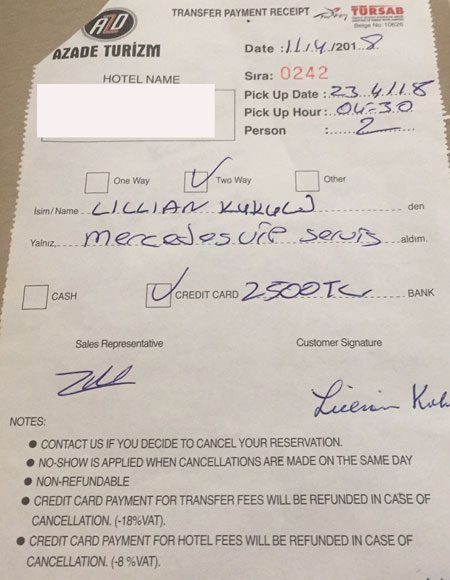 AZD
TRANSFER PAYMENT RECEIPT
TÜRSAB
Belge No: 10626
AZADE TURİZM
Date : 11/4/2018
HOTEL NAME
Sıra: 0242
Pick Up Date : 23.4.118
Pick Up Hour: 04-30
Person : 2
One Way Two Way Other
İsim/Name LILLIAN den
Yalnız, mercedes vip servis aldım.
CASH CREDIT CARD 2500TL BANK
Sales Representative Customer Signature
Lillian
NOTES:
● CONTACT US IF YOU DECIDE TO CANCEL YOUR RESERVATION.
● NO-SHOW IS APPLIED WHEN CANCELLATIONS ARE MADE ON THE SAME DAY
● NON-REFUNDABLE
● CREDIT CARD PAYMENT FOR TRANSFER FEES WILL BE REFUNDED IN CASE OF
CANCELLATION. (-18%VAT).
● CREDIT CARD PAYMENT FOR HOTEL FEES WILL BE REFUNDED IN CASE OF
CANCELLATION. (-8 %VAT).